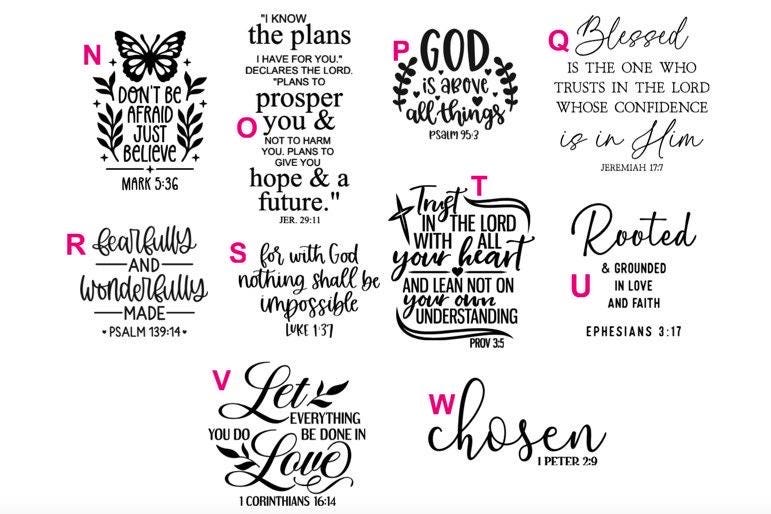 N
DON'T BE
AFRAID
JUST
BELIEVE
MARK 5:36
O
"I KNOW
the plans
I HAVE FOR YOU."
DECLARES THE LORD.
"PLANS TO
prosper
you &
NOT TO HARM
YOU. PLANS TO
GIVE YOU
hope & a
future."
JER. 29:11
P
GOD
is ABOVE
all things
PSALM 95:3
Q
Blessed
IS THE ONE WHO
TRUSTS IN THE LORD
WHOSE CONFIDENCE
is in Him
JEREMIAH 17:7
R
fearfully
AND
wonderfully
MADE
PSALM 139:14
S
for with God
nothing shall be
impossible
LUKE 1:37
T
Trust
IN THE LORD
WITH ALL
your heart
AND LEAN NOT ON
your own
UNDERSTANDING
PROV 3:5
U
Rooted
& GROUNDED
IN LOVE
AND FAITH
EPHESIANS 3:17
V
Let
EVERYTHING
YOU DO BE DONE IN
Love
1 CORINTHIANS 16:14
W
chosen
1 PETER 2:9